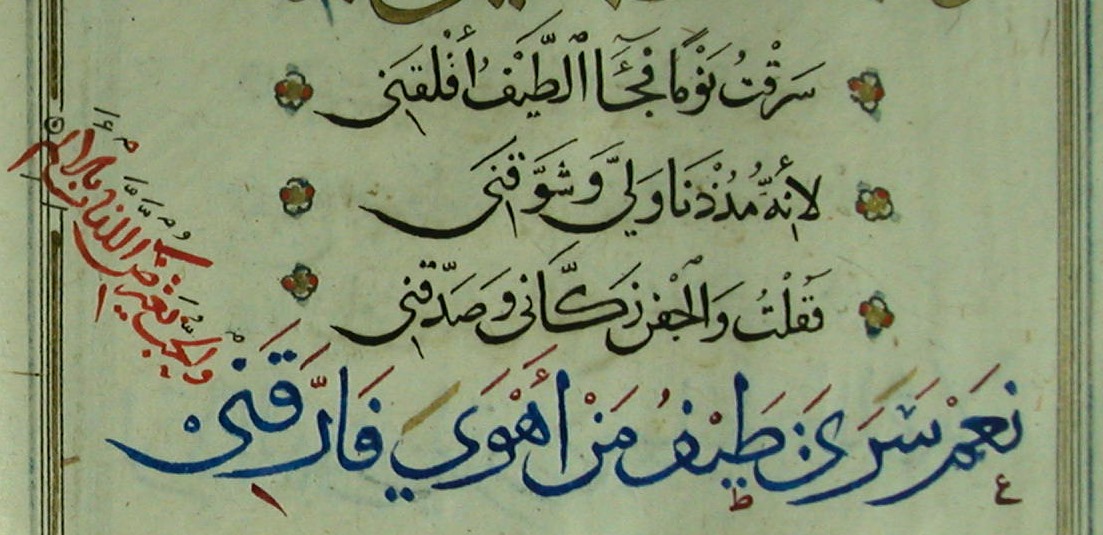 سَرَقْتُ نَوْمًا فَجَآءَ الطَّيْفُ أَقْلَقَنِي
لِأَنَّهُ مُذْ دَنَا وَلَّى وَشَوَّقَنِي
فَقُلْتُ وَالْجَفْنُ زَكَّانِي وَصَدَّقَنِي
نَعَمْ سَرَى طَيْفُ مَنْ أَهْوَى فَأَرَّقَنِي
وَالحُبُّ يَعْتَرِضُ اللَّذَّاتِ بِالأَلَمِ